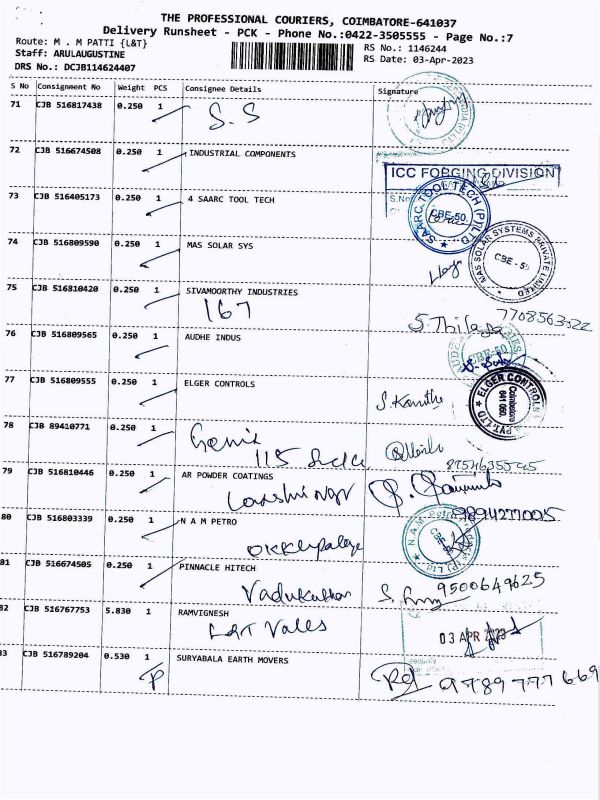 THE PROFESSIONAL COURIERS, COIMBATORE-641037
Delivery Runsheet - PCK - Phone No.:0422-3505555 - Page No.:7
Route: M . M PATTI {L&T}
RS No.: 1146244
Staff: ARULAUGUSTINE
RS Date: 03-Apr-2023
DRS No.: DCJB114624407
S No Consignment No Weight PCS Consignee Details Signature
71 CJB 516817438 0.250 1 S.S
72 CJB 516674508 0.250 1 INDUSTRIAL COMPONENTS
ICC FORGING DIVISION
73 CJB 516405173 0.250 1 4 SAARC TOOL TECH
SAARC-TOOL TECH (P) LTD CBE-50
74 CJB 516809590 0.250 1 MAS SOLAR SYS
MAS SOLAR SYSTEMS PRIVATE LIMITED CBE - 50
75 CJB 516810420 0.250 1 SIVAMOORTHY INDUSTRIES
167 S. Thilaga 7708563522
76 CJB 516809565 0.250 1 AUDHE INDUS
CBE-50
77 CJB 516809555 0.250 1 ELGER CONTROLS
ELGER CONTROLS PVT. LTD Coimbatore 641 050
78 CJB 89410771 0.250 1
115
79 CJB 516810446 0.250 1 AR POWDER COATINGS
Lakshi Ngr
9894277005
80 CJB 516803339 0.250 1 N A M PETRO
N.A.M. (P) Ltd CBE
81 CJB 516674505 0.250 1 PINNACLE HITECH
9500649625
82 CJB 516767753 5.830 1 RAMVIGNESH
L&T Valves
03 APR 2023
83 CJB 516789204 0.530 1 SURYABALA EARTH MOVERS
P 9789777669